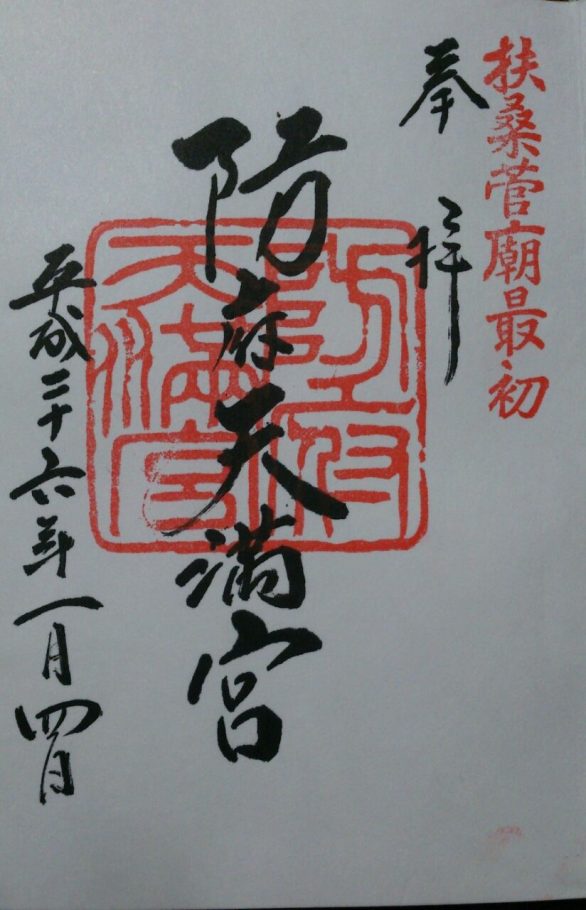 扶桑菅廟最初
奉拝
防府天満宮
防府
天満宮
平成二十六年一月四日